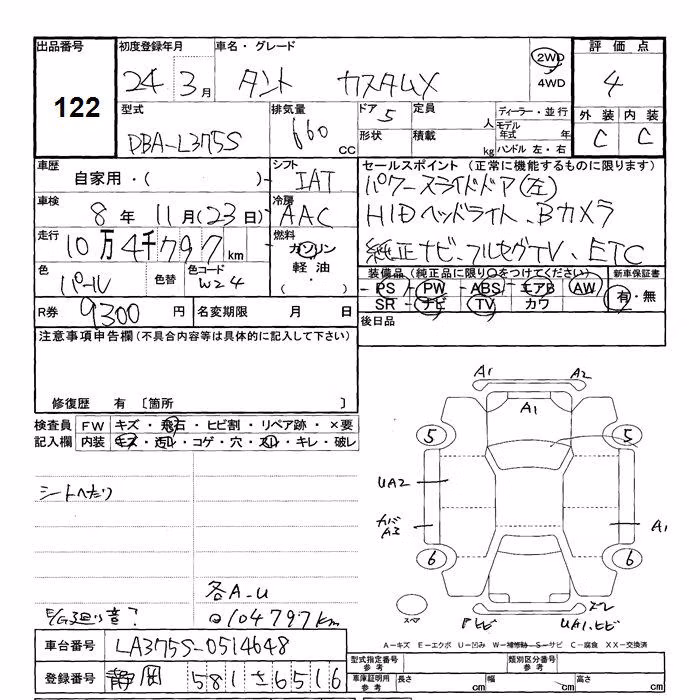 出品番号 初度登録年月 車名・グレード 評価点
122 24 3月 タント カスタムX 2WD 4WD 4
型式 排気量 ドア 5 定員 人 ディーラー・並行 外装 内装
DBA-L375S 660 CC 形状 積載 kg モデル年式 年 ハンドル 左・右 C C
車歴 シフト セールスポイント (正常に機能するものに限ります)
自家用・( ) IAT パワースライドドア(左)
車検 冷房 HIDヘッドライト、Bカメラ
8年 11月(23日) AAC 純正ナビ、フルセグTV、ETC
走行 燃料
10万4千797km ガソリン 軽油
色 パール 色替 色コード W24
装備品(純正品に限り○をつけてください) 新車保証書
PS PW ABS エアB AW 有・無
SR ナビ TV カワ
R券 9300 円 名変期限 月 日 後日品
注意事項申告欄(不具合内容等は具体的に記入して下さい)
修復歴 有 〔箇所 〕
検査員 FW キズ・飛石・ヒビ割・リペア跡・×要
記入欄 内装 キズ・汚レ・コゲ・穴・スレ・キレ・破レ
シートへたり
各A-U
E/G廻り音?
104797km
A1 A2
A1
5 5
UA2
A3 A1
6 6
スペア ヒビ UA1、ヒビ
A-キズ E-エクボ U-凹み W-補修跡 S-サビ C-腐食 XX-交換済
車台番号 LA375S-0514648
登録番号 静岡 581 さ 6516
型式指定番号 参考 類別区分番号 参考
車庫証明用 参考 長さ cm 幅 cm 高さ cm